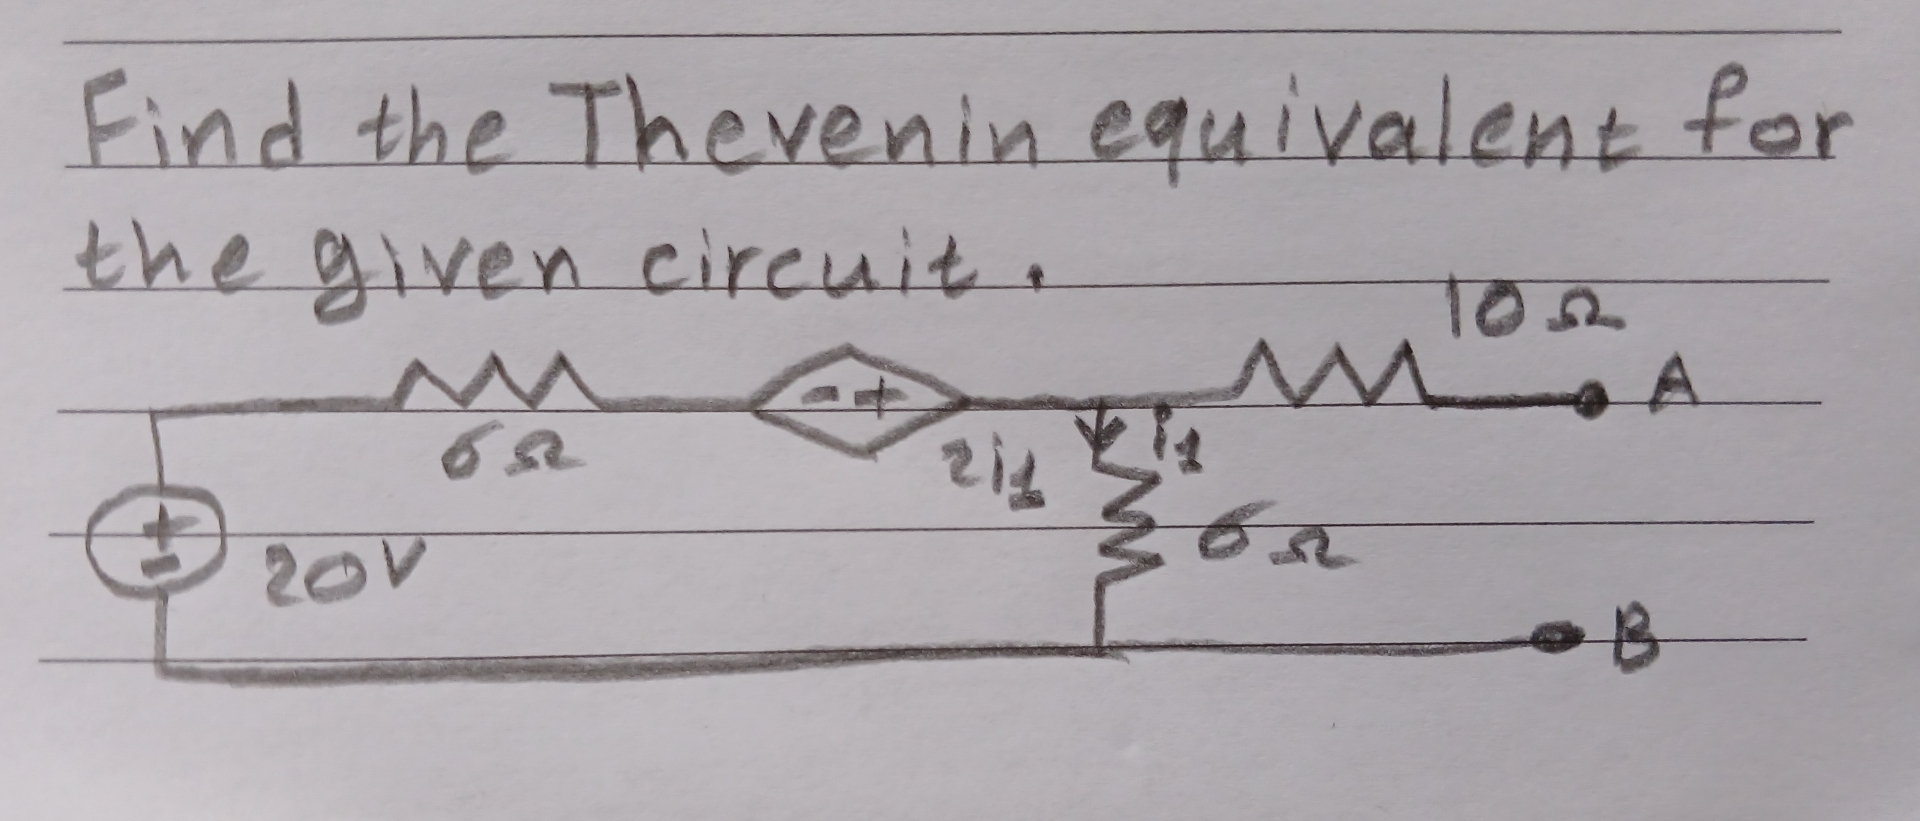 Find the Thevenin equivalent for
the given circuit.
10 Ω
- +
A
6 Ω
2i1
i1
+
-
20V
6 Ω
B